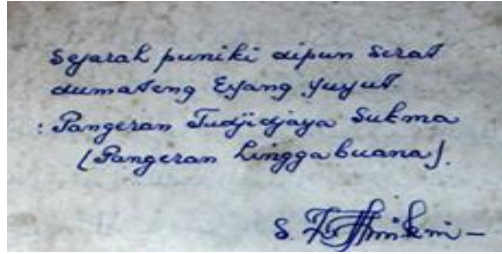 Sejarah puniki dipun serat
dumateng Eyang Yuyut.
: Pangeran Tudjidjaya Sukma
(Pangeran Linggabuana).
S.